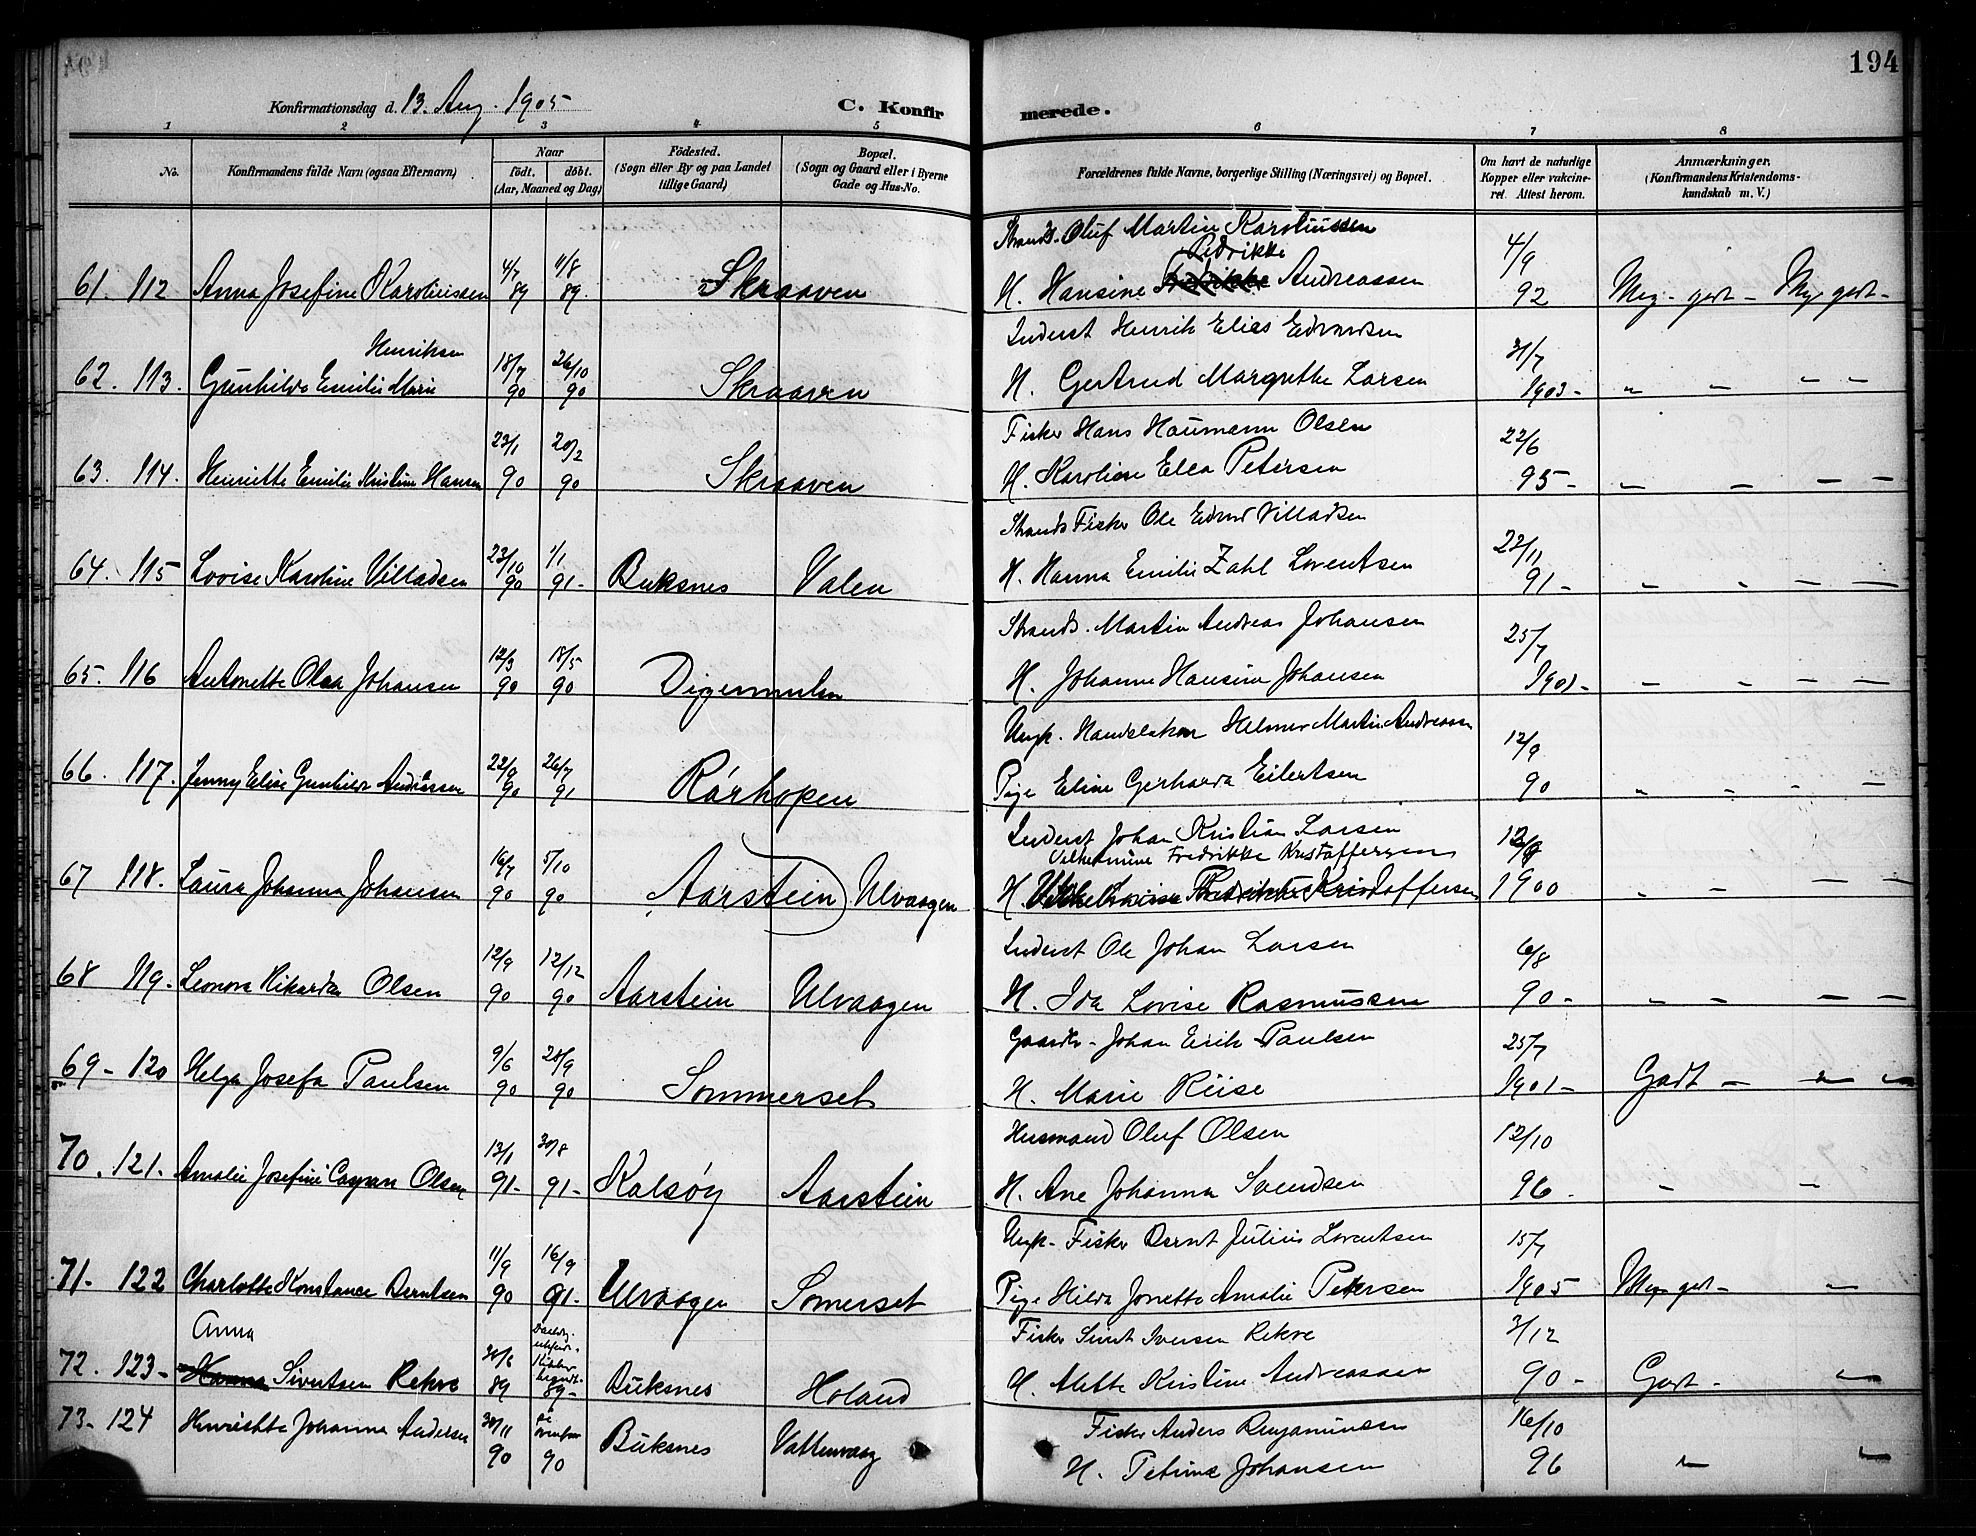 194
Konfirmationsdag d. 13. Aug. 1905
C. Konfir merede.
1 2 3 4 5 6 7 8
No. Konfirmandens fulde Navn (ogsaa Efternavn) Naar født. døbt. (Aar, Maaned og Dag) Fødested. (Sogn eller By og paa Landet tillige Gaard) Bopæl. (Sogn og Gaard eller i Byerne Gade og Hus-No. Forældrenes fulde Navne, borgerlige Stilling (Næringsvei) og Bopæl. Om havt de naturlige Kopper eller vakcineret. Attest herom. Anmærkninger. (Konfirmandens Kristendomskundskab m. V.)
Strands. Oluf Martin Karoliussen
4/7 11/8 Pedrikke 4/9
61. 112 Anna Josefine Karoliussen 89 89. Skraaven H. Hansine Andreassen 92 Meg. godt - Meg. godt -
Inderst Henrik Elias Edvardsen
Henriksen 18/7 26/10 31/7
62. 113. Gunhilda Emilie Marie 90 90 Skraaven H. Gertrud Margrethe Larsen 1903 - " - - -
Fisker Hans Haumann Olsen
23/1 20/2 22/6
63. 114. Henriette Emilie Kristine Hansen 90 90 Skraaven H. Karoline Elea Petersen 95 - - - - -
Strands Fisker Ole Edvard Villadsen
23/10 1/1 22/11
64. 115 Lovise Karoline Villadsen 90 91- Buksnes Valen H. Hanna Emilie Zahl Lorentsen 91 - - - - -
Strands. Martin Andreas Johansen
12/3 18/5 25/7
65. 116 Antonette Olea Johansen 90 90 Digermulen H. Johanne Hansine Johansen 1901 - - - - -
Ungk. Handelskar Helmer Martin Andreassen
22/9 26/7 12/9
66. 117. Jenny Elise Gunhild Andreassen 90 91 Rørhopen Pige Eline Gerharda Eilertsen 90 " - - -
Inderst Johan Kristian Larsen
16/7 5/10 Vilhelmine Fredrikke Kristoffersen 12/9
67 118. Laura Johanna Johansen 90 90 Aarstein Ulvaagen H. Fredrikke Kristoffersen 1900 " - - -
Inderst Ole Johan Larsen
12/9 12/12 6/8
68 119. Leonora Rikarda Olsen 90 90 Aarstein Ulvaagen H. Ida Lovise Rasmussen 90 - " - - -
Gaardbr - Johan Erik Paulsen
9/6 20/9 25/7
69 - 120 Helga Josefa Paulsen 90 90 Sommerset H. Marie Riise 1901 - Godt - - -
Husmand Oluf Olsen
13/1 30/8 12/10
70. 121. Amalie Josefine Olsen 91- 91- Kalsøy Aarstein H. Ane Johanna Svendsen 96 . " -
Ungk. Fisker Bernt Julius Lorentsen
11/9 16/9 15/7
71- 122 Charlotte Konstance Berntsen 90 91- Ulvaagen Somerset Pige Hilda Jonette Amalie Petersen 1905 Meg. godt - -
Anna Fisker Sivert Iversen Rekve
30/6 3/12
72. 123 - Sivertsen Rekve 89 89- Buksnes Holand H. Mette Kristine Andreassen 90 - Godt - -
30/11 Fisker Anders Benjaminsen 16/10
73- 124 Henriette Johanna Andersen 90 90 Buksnes Vattervaag H. Petrine Johansen 96 " -